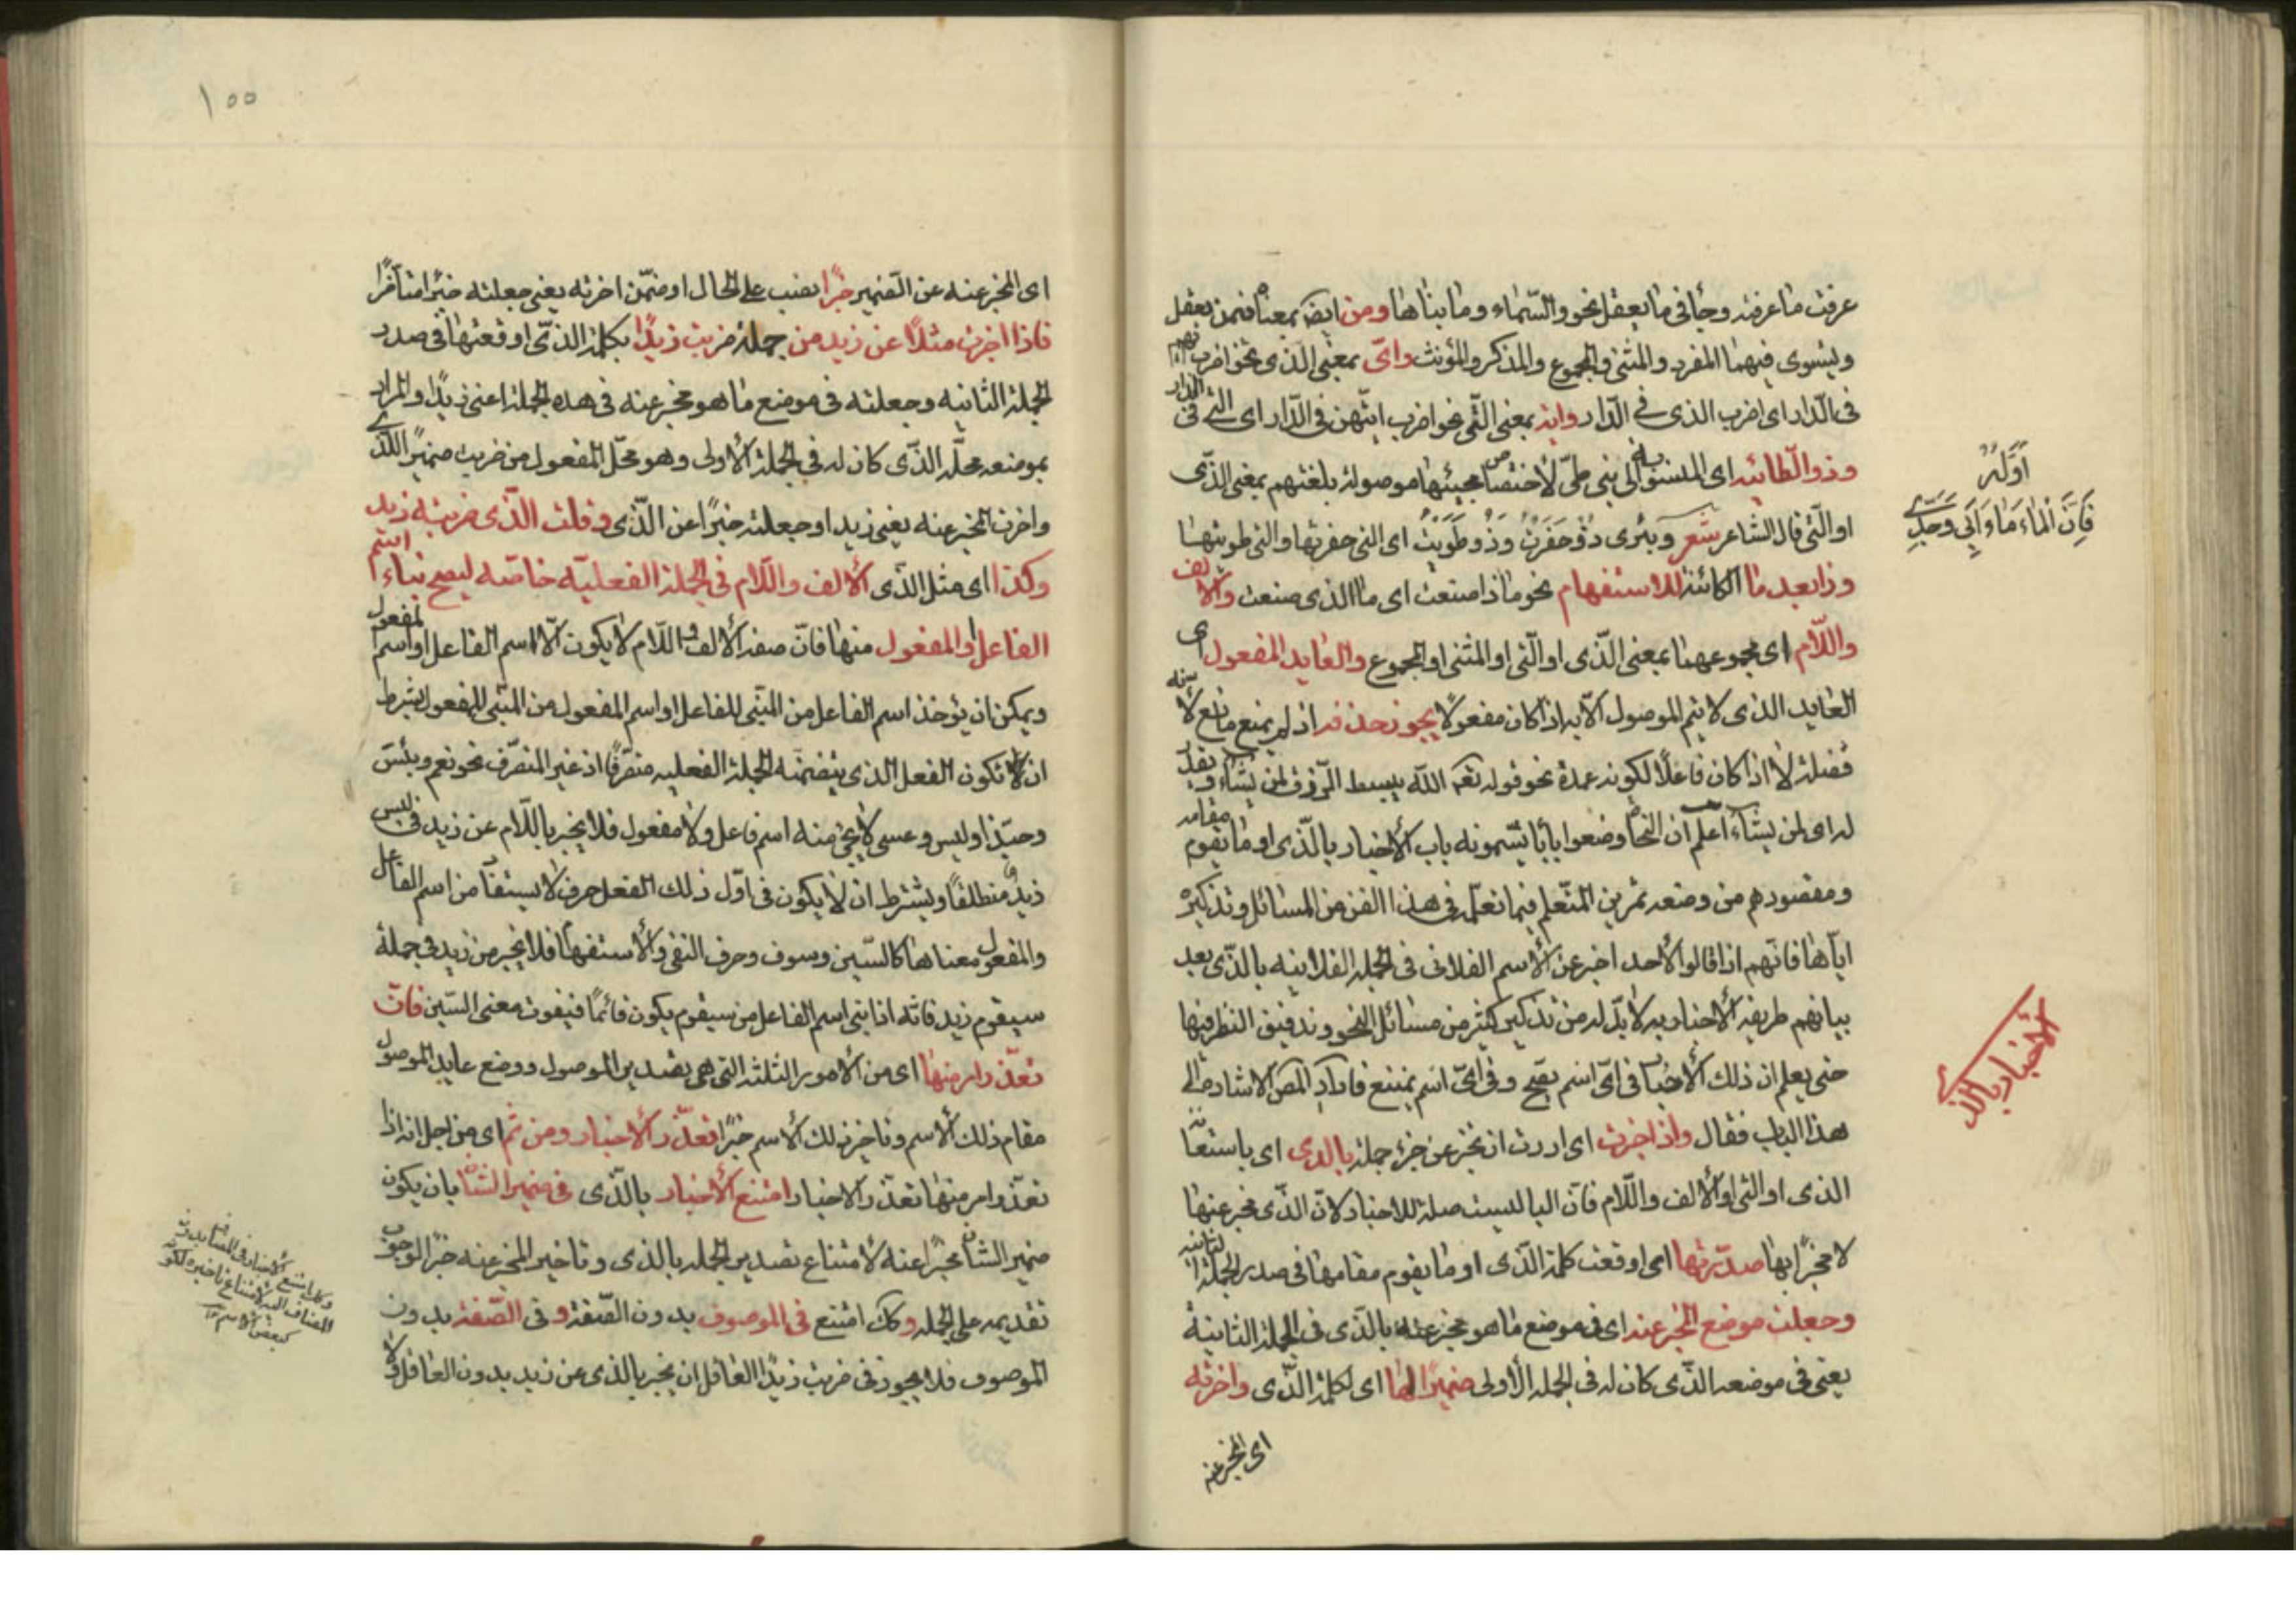 عرفت ما عرفته وجأ في ما يعقل نحو والسّماء وما بناها ومن ايضًا بمعناه فمن يعقل
ويستوى فيهما المفرد والمثنى والمجموع والمذكر والمؤنث واىّ بمعنى الذى نحو اضرب ايّهم
فى الدّار اى اضرب الذى فى الدّار واية بمعنى الّتى نحو اضرب ايتّهن فى الدّار اى التى فى الدار
وذو الطّائيه اى المنسوبة الى بنى طىّ لاختصاص مجيئها موصولة بلغتهم بمعنى الذّى
او الّتى قال الشاعر شعر وبئرى ذُو حَفَرْتُ وَذُو طَوَيْتُ اى التى حفرتها والتى طويتها
اَوّلهُ
فَاِنَّ الْمٰاءَ مٰاءُ اَبِى وَجَدِّى
وذا بعد ما الكائنة للاستفهام نحو ماذا صنعت اى ما الذى صنعت والالف
واللّام اى مجموعهما بمعنى الذّى او الّتى او المثنى او المجموع والعايد المفعول اى
العايد الذى لا يتم الموصول الاّ به اذا كان مفعولًا يجوز حذفه اذ لم يمنع مانع لأنه
فضلة لا اذا كان فاعلًا لكونه عمدة نحو قوله تعه اللّه يبسط الرّزق لمن يشاء ويقدر
له اى لمن يشاء اعلم ان النحاة وضعوا بابًا يسّمونه باب الأخبار بالّذى او ما يقوم مقامه
ومقصودهم من وضعه تمرين المتّعلم فيما تعلّم فى هذا الفن من المسائل وتذكيره
ايّاها فانّهم اذا قالوا لأحد اخبر عن الأسم الفلانى فى الجملة الفلانيه بالذّى بعد
بيانهم طريقة الأخبار به لا بدّ له من تذكير كثير من مسائل النحو وتدقيق النظر فيها
حتى يعلم ان ذلك الأخبار فى اىّ اسم يصّح وفى اىّ اسم يمتنع فاراد المصّ الاشارة الى
الأخبار بالذى
هذا الباب فقال واذا اخبرت اى اردت ان تخبر عن جزء جملة بالذى اى باستعانة
الذى او التى او الألف واللّام فانّ البا ليست صلة للاخبار لانّ الذّى مخبر عنها
لا مخبرًا بها صدّرتها اى اوقعت كلمة الذّى او ما يقوم مقامها فى صدر الجملة الثانيه
وجعلت موضع المخبر عنه اى فى موضع ما هو مخبر عنه بالذى فى الجملة الثانية
يعنى فى موضعه الذّى كان له فى الجملة الأولى ضميرًا لها اى لكلمة الذّى واخرته
اى المخبر عنه
١٥٥
اى المخبر عنه عن الضمير خبرًا نصب على الحال او ضمّن اخرته يعنى جعلته خبرًا متأخرًا
فاذا اخبرت مثلًا عن زيد من جملة ضربت زيدًا بكلمة الذى اوقعتها فى صدر
الجملة الثانيه وجعلته فى موضع ما هو مخبر عنه فى هذه الجملة اعنى زيدًا والمراد
بموضعه محلّه الذّى كان له فى الجملة الأولى وهو محلّ المفعول من ضربت ضميرًا للذى
واخرت المخبر عنه يعنى زيد او جعلته خبرًا عن الّذى وقلت الذّى ضربته زيد
وكذا اى مثل الذّى الألف واللّام فى الجملة الفعليّه خاصّه ليصح بناء اسم
الفاعل والمفعول منها فانّ صفة الألف واللّام لا يكون الّا اسم الفاعل او اسم المفعول
ويمكن ان يؤخذ اسم الفاعل من المبنّى للفاعل او اسم المفعول من المبنّى للمفعول بشرط
ان يكون الفعل الذى يتضمنه الجملة الفعليه متصرّفًا اذ غير المتصرّف نحو نعم وبئس
وحبّذا وليس وعسى لا يجئ منه اسم فاعل ولا مفعول فلا يخبر باللّام عن زيد فى ليس
زيد منطلقًا ويشترط ان لا يكون فى اوّل ذلك الفعل حرف لا يستفاد من اسم الفاعل
والمفعول معناها كالسّين وسوف وحرف النفى والأستفهام فلا يخبر من زيد فى جملة
سيقوم زيد فانّه اذا بنى اسم الفاعل من سيقوم يكون قائمًا فيفوت معنى السّين فان
تعذّر امر منها اى من الأمور الثلثة التى هى تصدير الموصول ووضع عايد الموصول
مقام ذلك الأسم وتاخير ذلك الأسم خبرًا تعذّر الأخبار ومن ثمّ اى من اجل انه اذا
تعذّر امر منها تعذّر الاخبار امتنع الأخبار بالذّى فى ضمير الشان بان يكون
ضمير الشان مخبرًا عنه لأمتناع تصدير الجملة بالذى وتاخير المخبر عنه خبرًا لوجوب
تقديمه على الجملة وكك امتنع فى الموصوف بدون الصّفة وفى الصّفة بدون
الموصوف فلا يجوز فى ضربت زيدًا العاقل ان يخبر بالذى عن زيد بدون العاقل ولا